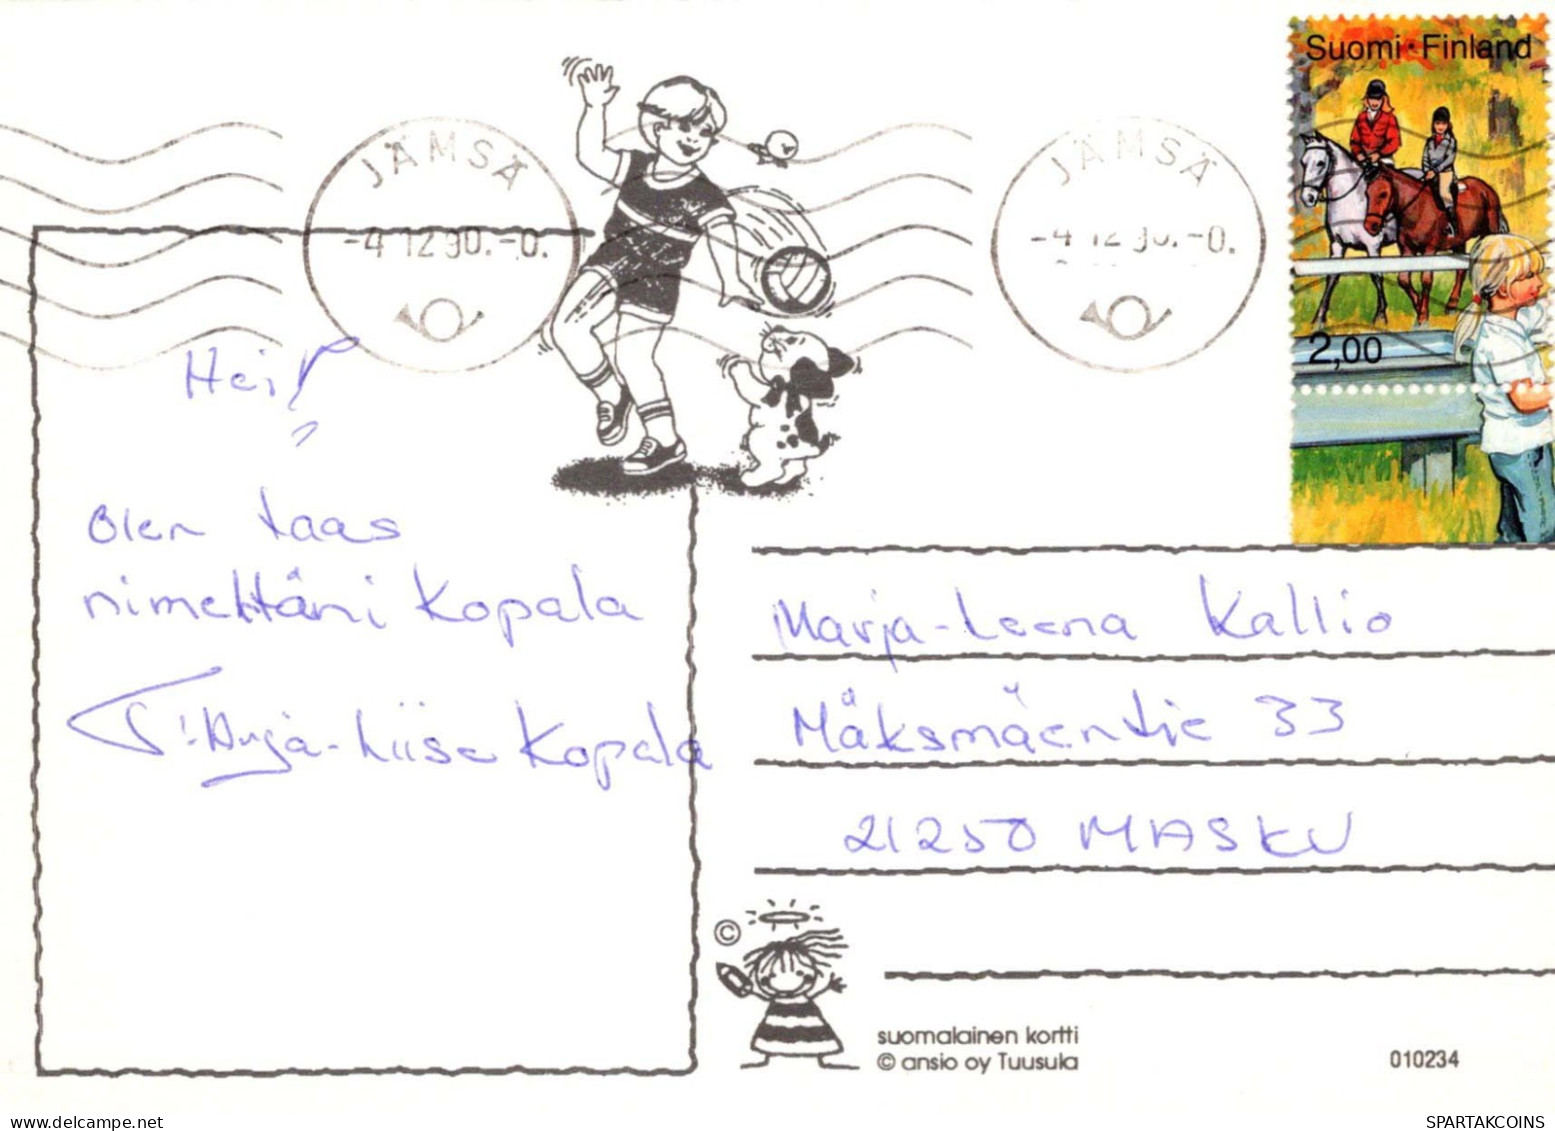 Suomi Finland
2,00
JÄMSÄ
-4 12 90.-0.
JÄMSÄ
-4 12 90.-0.
Hei!
Olen taas
nimeltäni Kopala
T: Anja-Liisa Kopala
Marja-Leena Kallio
Mäksmäentie 33
21250 MASKU
©
suomalainen kortti
© ansio oy Tuusula
010234
SPARTAKCOINS